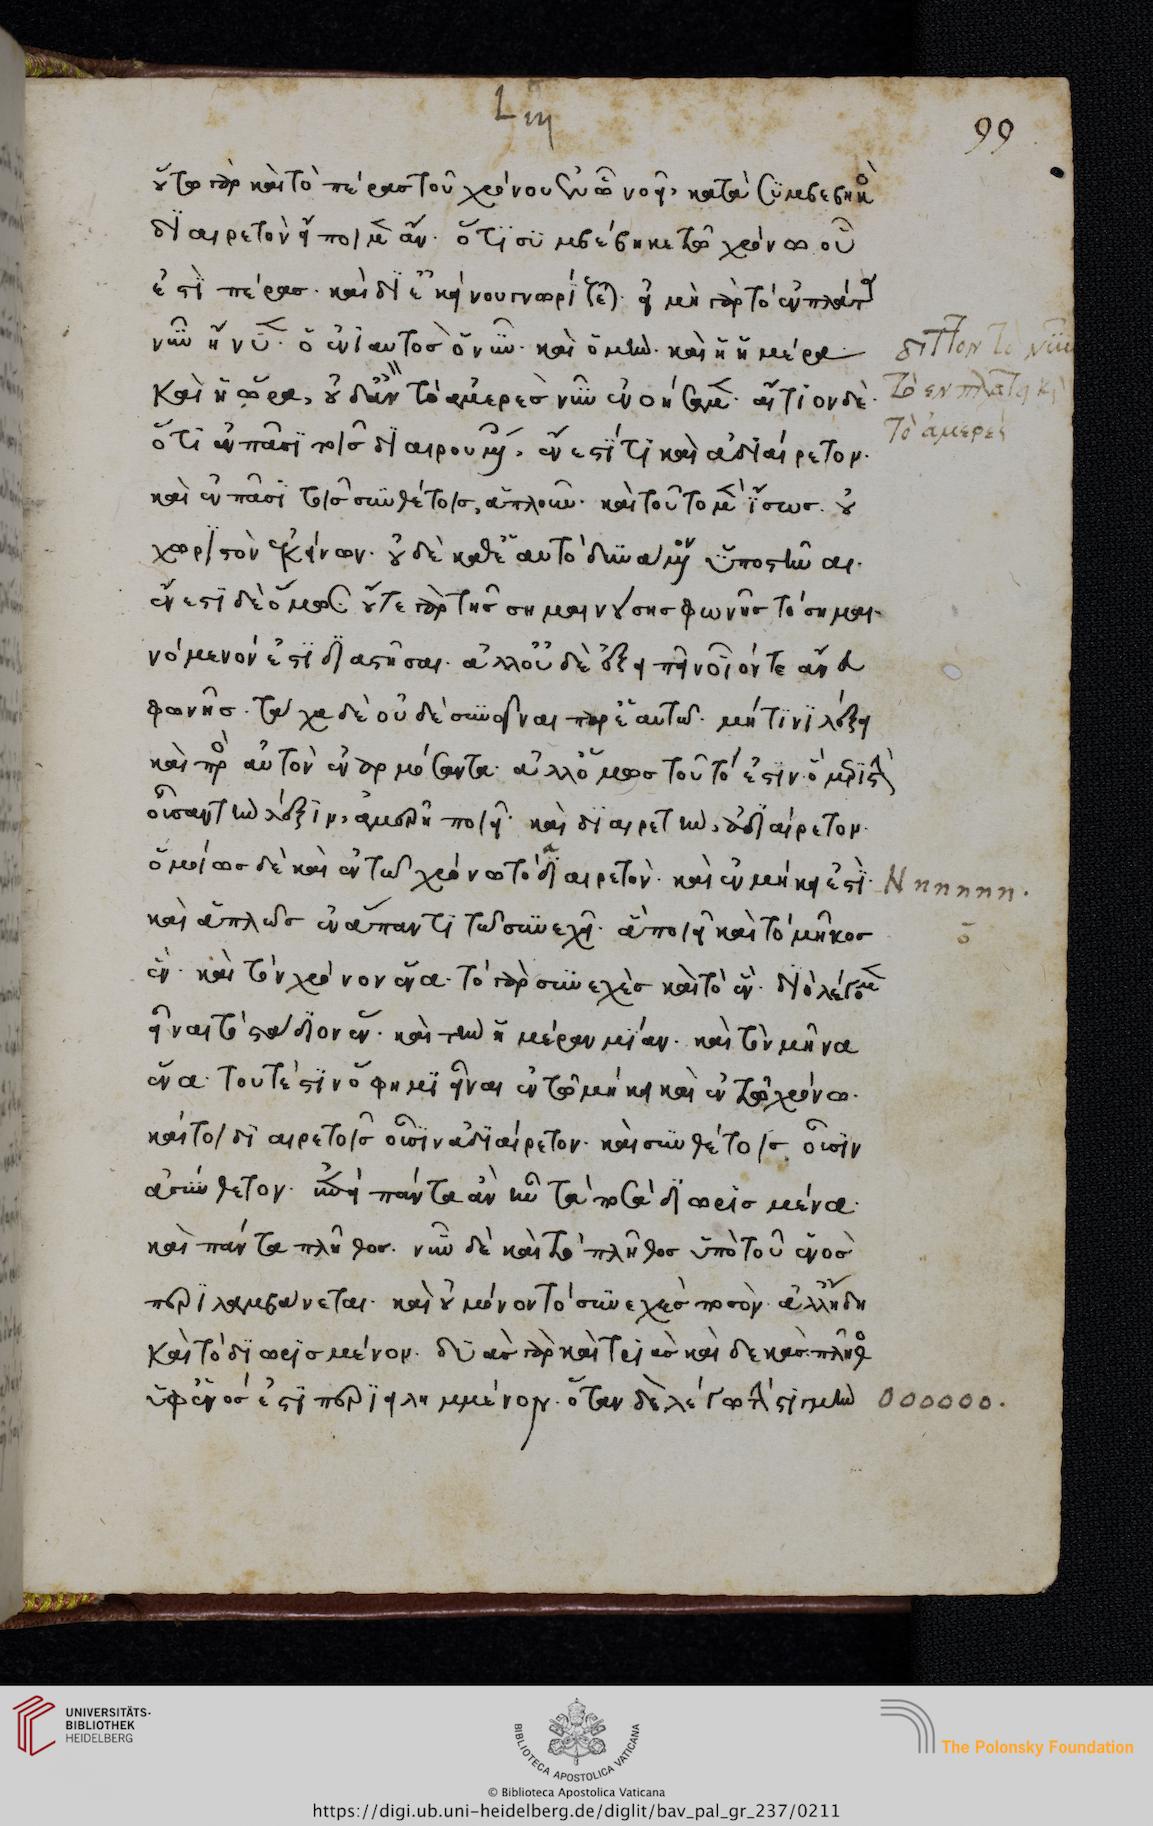 Liij
99
οὕτω γὰρ καὶ τὸ πέρας τοῦ χρόνου νῦν κατὰ συμβεβηκὸς
διαιρετὸν εἴποιμεν ἄν. ὅτι συμβέβηκε τῶ χρόνω οὗ
ἐστὶ πέρας. καὶ δι' ἐκείνου γνωρίζεται. εἰ μὴ γὰρ τὸ ἐν πλάτει
νῦν ἦν νῦν. ὁ ἐνιαυτὸς ὁ νῦν. καὶ ὁ μὴν. καὶ ἡ ἡμέρα
καὶ ἡ ὥρα, οὐδ' ἂν τὸ ἀμερὲς νῦν ἐνοήσαμεν. αἴτιον δὲ.
ὅτι ἐν πᾶσι τοῖς διαιρουμένοις, ἔνεστί τι καὶ ἀδιαίρετον.
καὶ ἐν πᾶσι τοῖς συνθέτοις, ἁπλοῦν. καὶ τοῦτο μὲν ἴσως οὐ
χωριστὸν ἐκείνων. οὐδὲ καθ' ἑαυτὸ δυνάμενον ὑποστῆναι.
ἔνεστι δὲ ὅμως οὔτε γὰρ τῆς σημαινούσης φωνῆς τὸ σημαι
νόμενόν ἐστι διαστῆσαι. ἀλλ' οὐδὲ
φωνῆς. τάχα δὲ οὐδὲ συνιδεῖν παρ' ἑαυτῶ. μή τινι λέξει
καὶ πρὸς αὐτὸν ἐναρμόσαντα. ἀλλ' ὅμως τοῦτό ἐστιν. ὃ μερισθεῖ
σαν τὴν λέξιν, ἀμερῆ ποιεῖ. καὶ διαιρετὴν, ἀδιαίρετον.
ὁμοίως δὲ καὶ ἐν τῶ χρόνω τὸ ἀδιαιρετὸν. καὶ ἐν μήκει ἐστὶ.
καὶ ἁπλῶς ἐν ἅπαντι τῶ συνεχεῖ. ἃ ποιεῖ καὶ τὸ μῆκος
ἓν. καὶ τὸν χρόνον ἕνα. τὸ γὰρ συνεχὲς καὶ τὸ ἓν. διὸ λέγομεν
εἶναι τὸ στάδιον ἓν. καὶ τὴν ἡμέραν μίαν. καὶ τὸν μῆνα
ἕνα. τουτέστιν ὅ φημι εἶναι ἐν τῶ μήκει καὶ ἐν τῶ χρόνω.
καὶ τοῖς διαιρετοῖς οὖσιν ἀδιαίρετον. καὶ συνθέτοις οὖσιν
ἀσύνθετον. ἐπεὶ πάντα ἂν ἦν τὰ ποσὰ διωρισμένα.
καὶ πάντα πλῆθος. νῦν δὲ καὶ τὸ πλῆθος ὑπὸ τοῦ ἑνὸς
περιλαμβάνεται. καὶ οὐ μόνον τὸ συνεχὲς ποσὸν. ἀλλ' ἤδη
καὶ τὸ διωρισμένον. δυὰς γὰρ καὶ τριὰς καὶ δεκὰς πλῆθος
ὑφ' ἑνός ἐστι περιειλημμένον. ὅταν δὲ λέγω
διττὸν τὸ νῦν
τὸ ἐν πλάτει καὶ
τὸ ἀμερές
N nnnnn.
ο
OOOOOO.
UNIVERSITÄTS-
BIBLIOTHEK
HEIDELBERG
BIBLIOTECA APOSTOLICA VATICANA
The Polonsky Foundation
© Biblioteca Apostolica Vaticana
https://digi.ub.uni-heidelberg.de/diglit/bav_pal_gr_237/0211